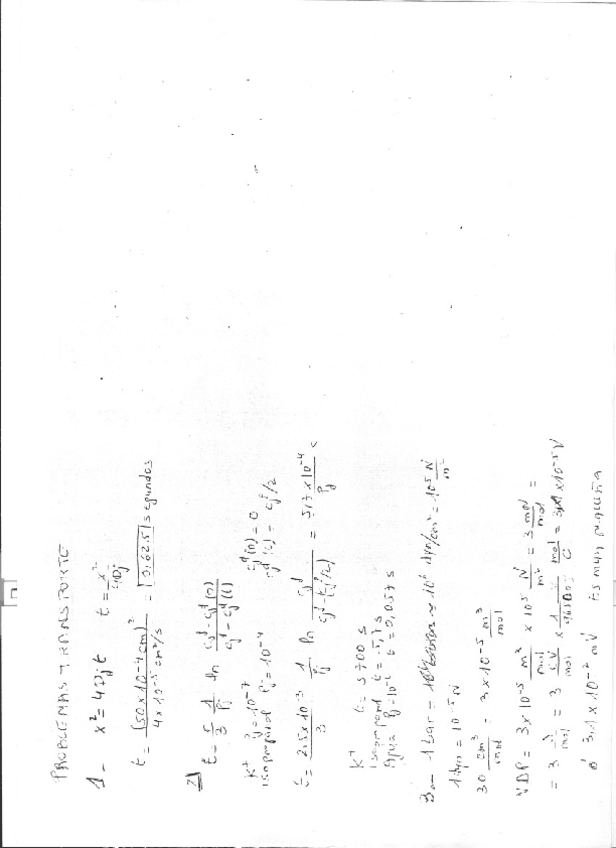 PROBLEMAS TRANSPORTE
1- x² = 4Djt t = x²/4Dj
t = (50 x 10⁻⁴ cm)² / 4 x 10⁻⁵ cm²/s = 0,625 segundos
2) t = r/3 1/Pj ln (cjᵒ - cjⁱ(0)) / (cjᵒ - cjⁱ(t))
K⁺ Pj = 10⁻⁷ cjⁱ(0) = 0
isopropanol Pj = 10⁻⁴ cjⁱ(t) = cjᵒ/2
t = 2,5 x 10⁻³ / 3 1/Pj ln cjᵒ / (cjᵒ - cjᵒ/2) = 5,7 x 10⁻⁴ / Pj s
K⁺ t = 5700 s
Isopropanol t = 5,7 s
Agua Pj = 10⁻² t = 0,057 s
3.- 1 bar = 10⁶ dyn/cm² = 10⁵ N/m²
1 dyn = 10⁻⁵ N
30 cm³/mol = 3 x 10⁻⁵ m³/mol
VDP = 3 x 10⁻⁵ m³/mol x 10⁵ N/m² = 3 mN/mol =
= 3 J/mol = 3 CV/mol x 1/96500 mol/C = 3,1 x 10⁻⁵ V
ó 3,1 x 10⁻² mV Es muy pequeña